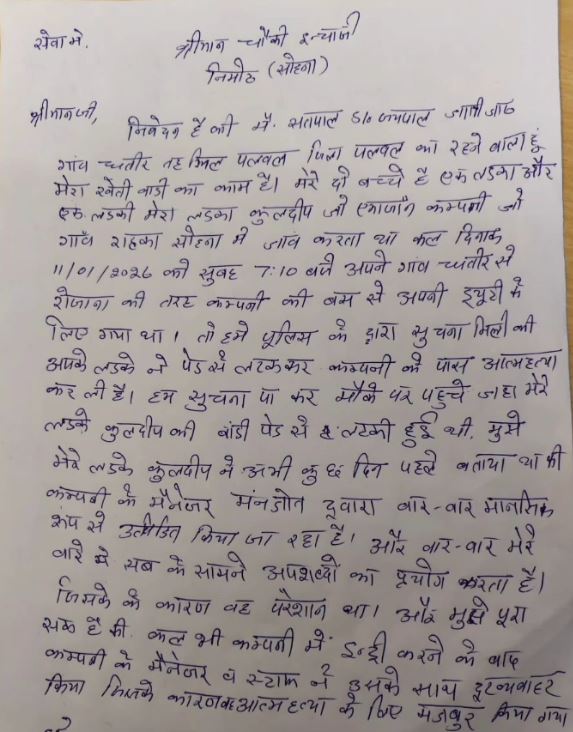 सेवा मे,
श्रीमान चौकी इन्चार्ज
निमोठ (सोहना)
श्रीमानजी,
निवेदन है की मैं. सतपाल S/o जयपाल जाती जाट
गांव चांदीर तहसिल पलवल जिला पलवल का रहने वाला हूं
मेरा खेती बाडी का काम है। मेरे दो बच्चे है एक लडका और
एक लडकी मेरा लडका कुलदीप जो कम्पनी जो
गाँव राहका सोहना मे जांब करता था कल दिनांक
11/01/2026 को सुबह 7:10 बजे अपने गांव से
रोजाना की तरह कम्पनी की बस से अपनी ड्यूटी के
लिए गया था। तो हमे पुलिस के द्वारा सुचना मिली की
आपके लडके ने पेड से लटककर कम्पनी के पास आत्महत्या
कर ली है। हम सुचना पा कर मौके पर पहुचे जहा मेरे
लडके कुलदीप की बांडी पेड से लटकी हुई थी, मुझे
मेरे लडके कुलदीप ने अभी कुछ दिन पहले बताया था की
कम्पनी के मैनेजर द्वारा बार-बार मानसिक
रूप से उत्पीडित किया जा रहा है। और बार-बार मेरे
बारे मे सब के सामने अपशब्दो का प्रयोग करता है।
जिसके के कारण वह परेशान था। और मुझे पूरा
सक है की कल भी कम्पनी में इन्ट्री करने के बाद
कम्पनी के मैनेजर व स्टाफ ने उसके साथ दुरव्यवाहर
किया जिसके कारण वह आत्महत्या के लिए मजबुर किया गया